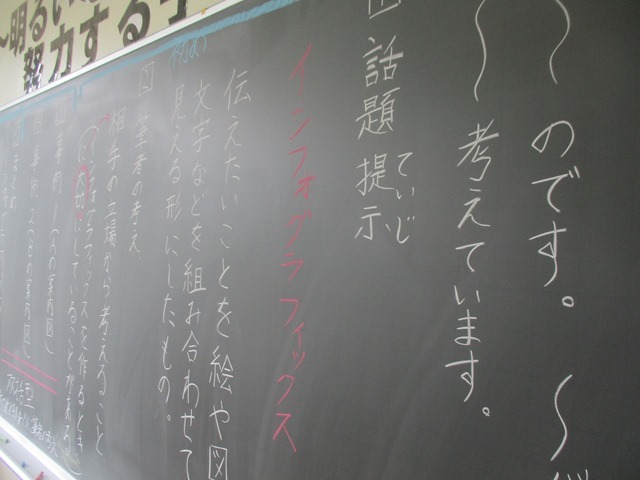 〜明るい
努力する子
〜のです。〜
〜考えています。
話題提示
ていじ
インフォグラフィックス
伝えたいことを絵や図
文字などを組み合わせて
見える形にしたもの。
筆者の考え
相手の立場から考えること
インフォグラフィックスを作るとき
大切にしていることがある。
事例1(Aの案内図)
事例2(Bの案内図)
まとめ